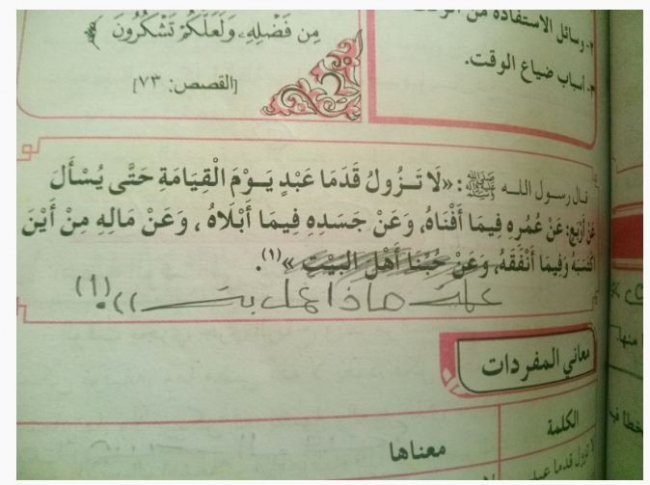 مِن فَضْلِهِ، وَلَعَلَّكُمْ تَشْكُرُونَ ﴾
[القصص: ٧٣]
٢- وسائل الاستفادة من الوقت
٣- أسباب ضياع الوقت.
قال رسول الله ﷺ: «لَا تَزُولُ قَدَمَا عَبْدٍ يَوْمَ الْقِيَامَةِ حَتَّى يُسْأَلَ
عَنْ أَرْبَعٍ: عَنْ عُمُرِهِ فِيمَا أَفْنَاهُ، وَعَنْ جَسَدِهِ فِيمَا أَبْلَاهُ، وَعَنْ مَالِهِ مِنْ أَيْنَ
اكْتَسَبَهُ وَفِيمَا أَنْفَقَهُ، وَعَنْ حُبِّنَا أَهْلَ البَيْتِ»(١).
ماذا عمل به)).(١)
معاني المفردات
الكلمة
معناها
لا تزول قدما عبد